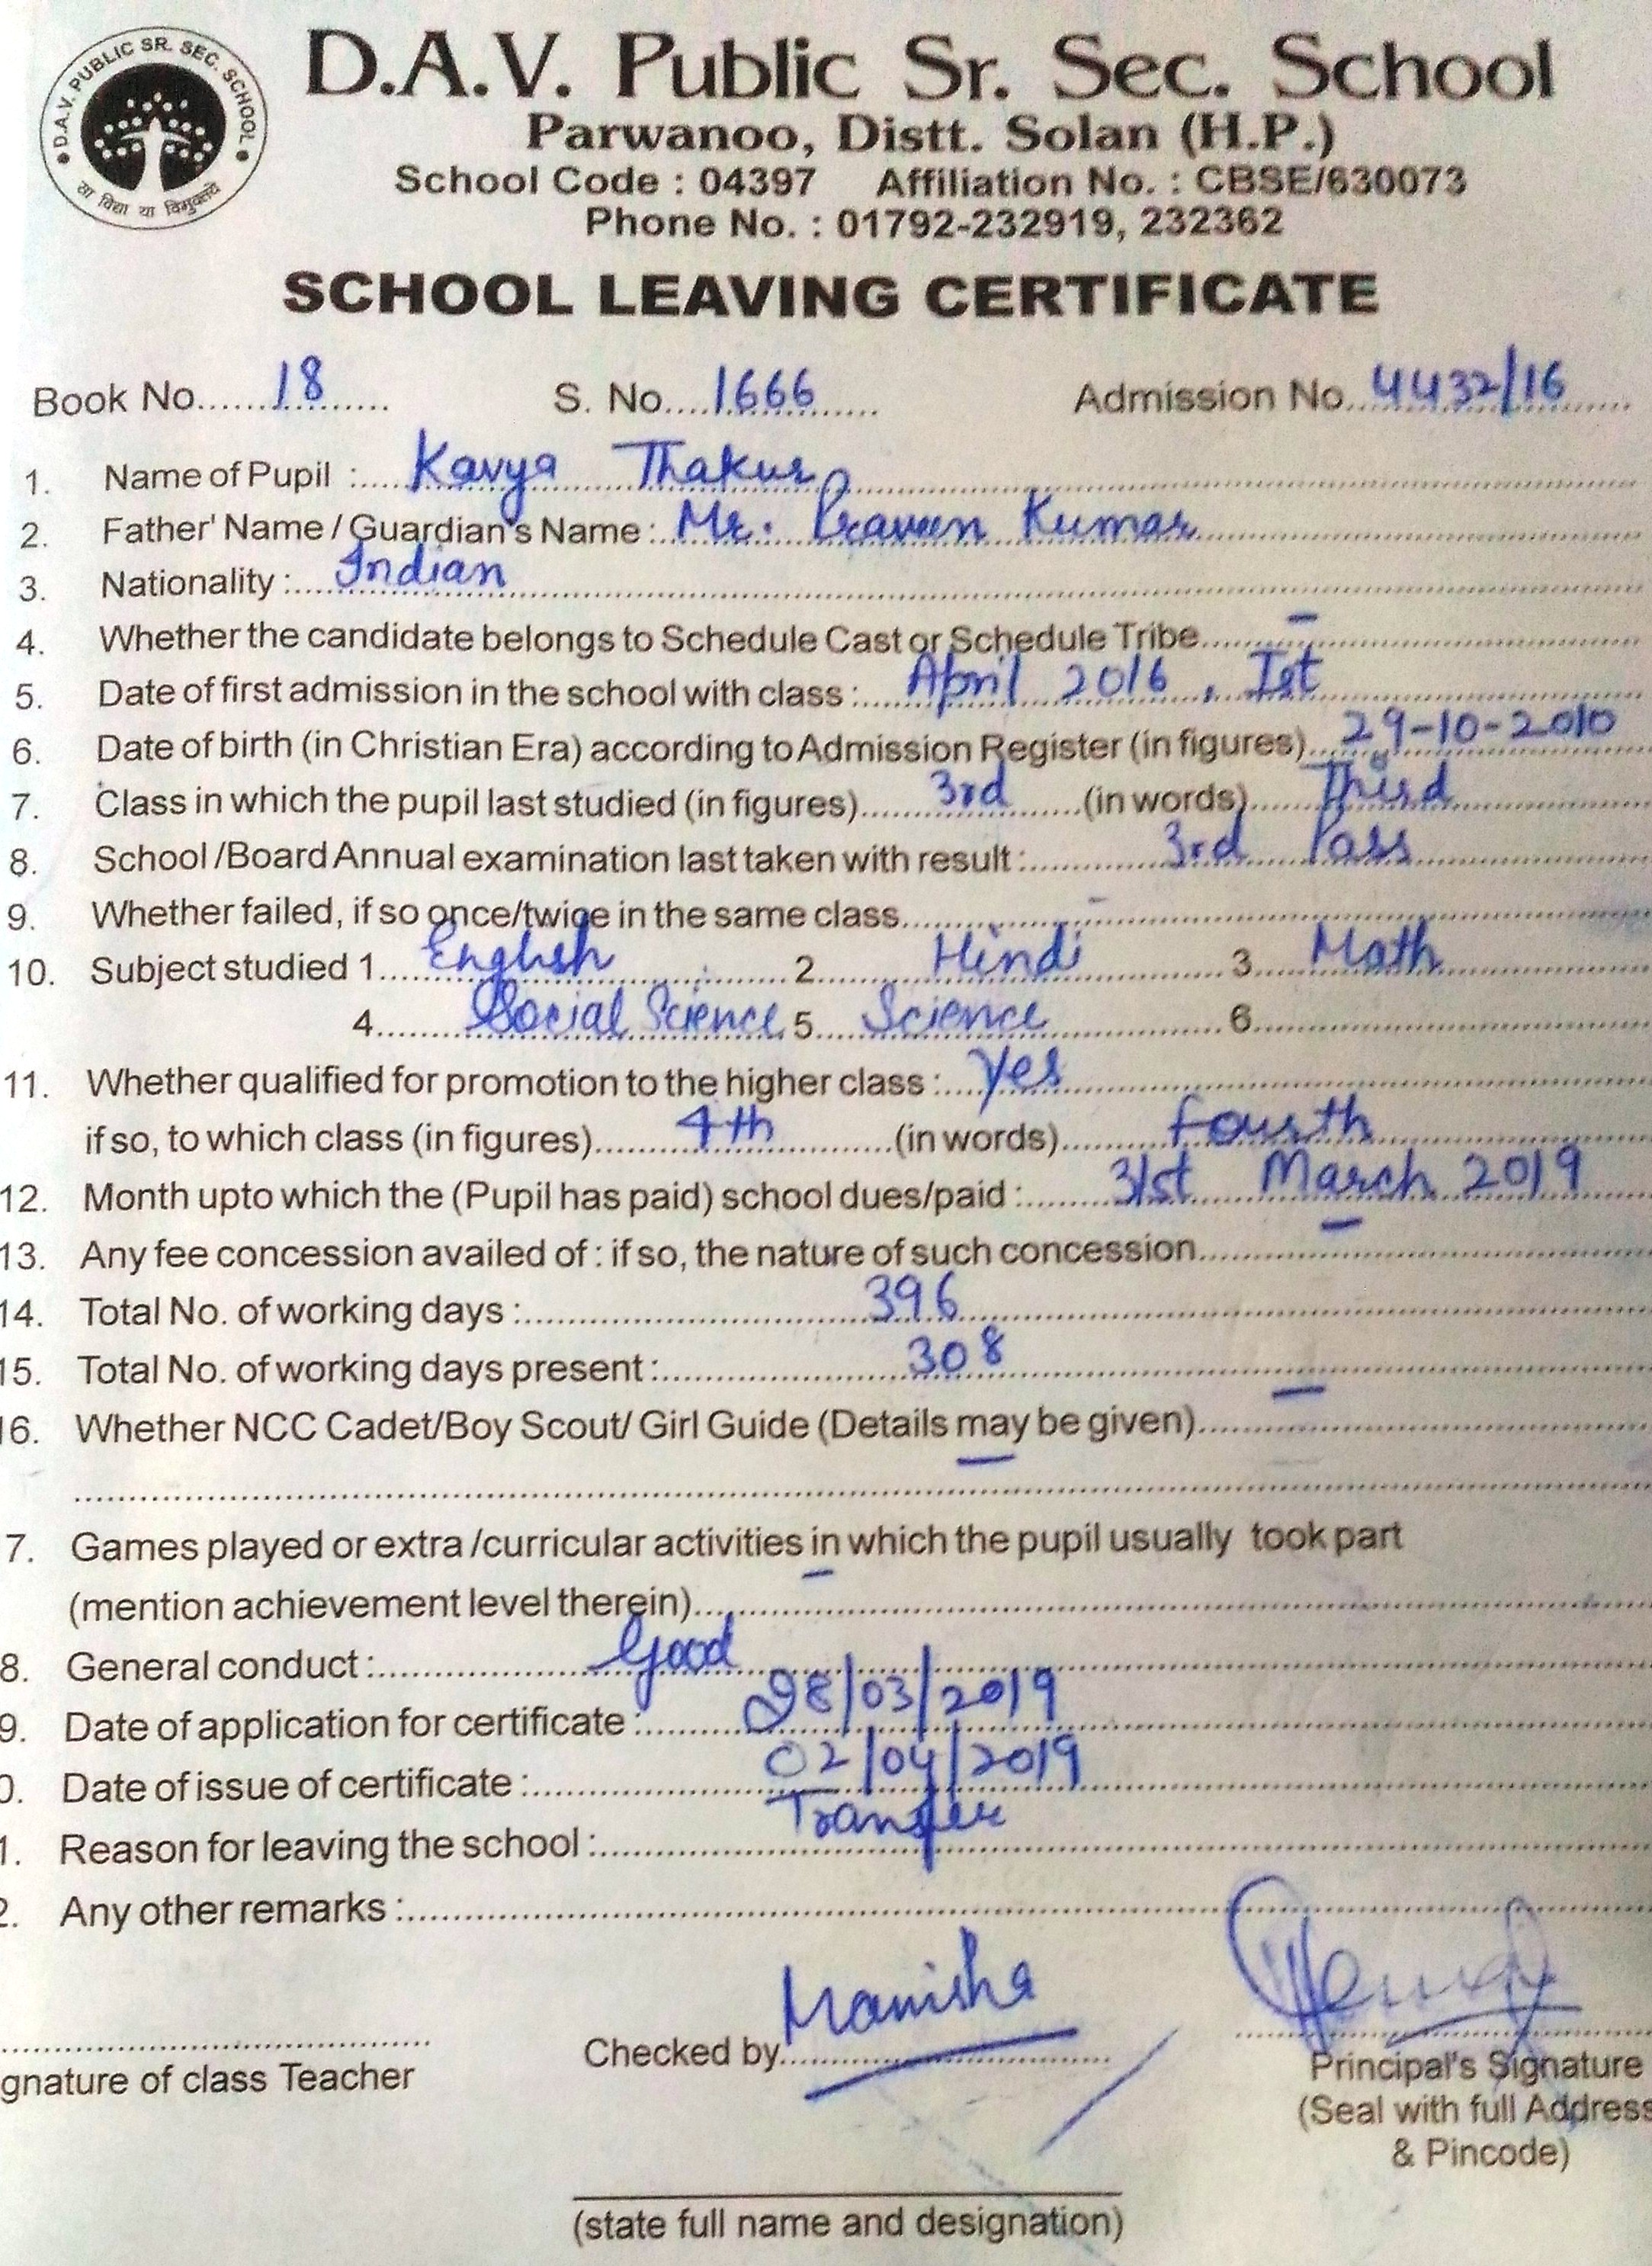 D.A.V. PUBLIC SR. SEC. SCHOOL
सा विद्या या विमुक्तये
D.A.V. Public Sr. Sec. School
Parwanoo, Distt. Solan (H.P.)
School Code : 04397 Affiliation No. : CBSE/630073
Phone No. : 01792-232919, 232362
SCHOOL LEAVING CERTIFICATE
Book No. 18 S. No. 1666 Admission No. 4432/16
1. Name of Pupil : Kavya Thakur
2. Father' Name / Guardian's Name : Mr. Praveen Kumar
3. Nationality : Indian
4. Whether the candidate belongs to Schedule Cast or Schedule Tribe –
5. Date of first admission in the school with class : April 2016, Ist
6. Date of birth (in Christian Era) according to Admission Register (in figures) 29-10-2010
7. Class in which the pupil last studied (in figures) 3rd (in words) Third
8. School /Board Annual examination last taken with result : 3rd Pass
9. Whether failed, if so once/twice in the same class -
10. Subject studied 1. English 2 Hindi 3 Math
4. Social Science 5 Science 6
11. Whether qualified for promotion to the higher class : Yes
if so, to which class (in figures) 4th (in words) fourth
12. Month upto which the (Pupil has paid) school dues/paid : 31st March 2019
13. Any fee concession availed of : if so, the nature of such concession –
14. Total No. of working days : 396
15. Total No. of working days present : 308
16. Whether NCC Cadet/Boy Scout/ Girl Guide (Details may be given) –
–
7. Games played or extra /curricular activities in which the pupil usually took part
(mention achievement level therein) –
8. General conduct : Good
9. Date of application for certificate : 28/03/2019
0. Date of issue of certificate : 02/04/2019
1. Reason for leaving the school : Transfer
2. Any other remarks :
Checked by Manisha
gnature of class Teacher Principal's Signature
(Seal with full Address
& Pincode)
(state full name and designation)